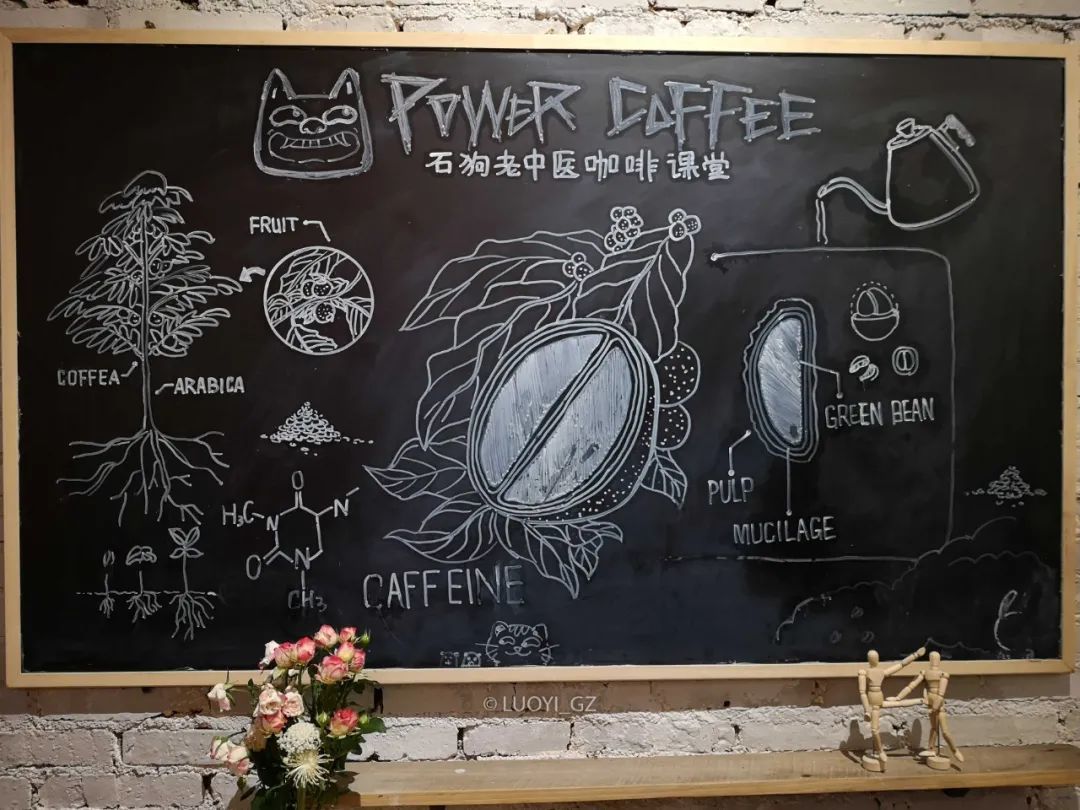 POWER COFFEE
石狗老中医咖啡课堂
FRUIT
COFFEA
ARABICA
GREEN BEAN
PULP
MUCILAGE
H₃C
O
N
N
O
N
CH₃
CAFFEINE
© LUOYI_GZ